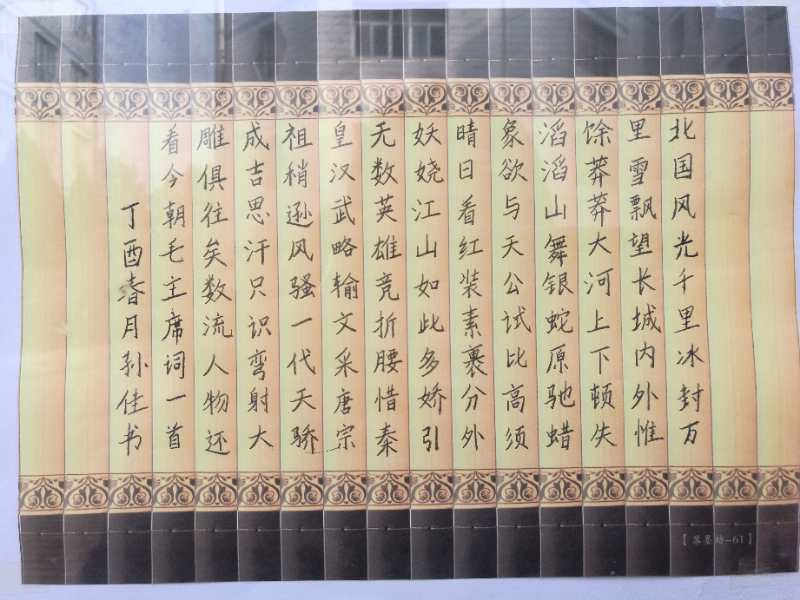 北国风光千里冰封万
里雪飘望长城内外惟
馀莽莽大河上下顿失
滔滔山舞银蛇原驰蜡
象欲与天公试比高须
晴日看红装素裹分外
妖娆江山如此多娇引
无数英雄竞折腰惜秦
皇汉武略输文采唐宗
祖稍逊风骚一代天骄
成吉思汗只识弯射大
雕俱往矣数流人物还
看今朝毛主席词一首
丁酉春月孙佳书